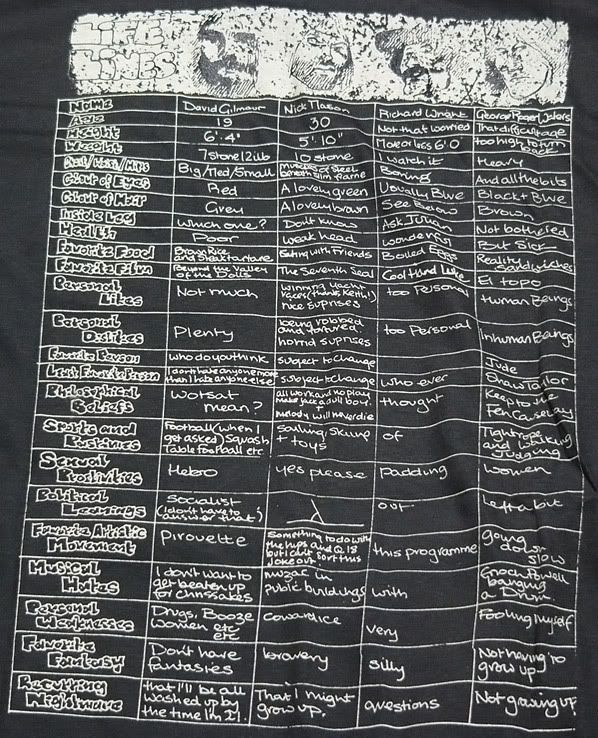 LIFE LINES
Name David Gilmour Nick Mason Richard Wright George Roger Waters
Age 19 30 Not that worried That difficult age
Height 6'.4" 5'.10" More or less 6'.0" too high to turn back
Weight 7 stone 12 lb 10 stone I watch it Heavy
Big/Med/Small muscles of steel beneath slim frame Boring And all the bits
Colour of Eyes Red A lovely green Usually Blue Black + Blue
Colour of Hair Grey A lovely brown See Below Brown
Inside Leg which one? Don't know Ask Julian Not bothered
Health Poor weak head wonderful But Sick
Favorite Food Brown Rice and Steak tartare Eating with Friends Boiled Eggs Reality Sandwiches
Favorite Film Beyond the Valley of the Dolls The Seventh Seal Cool Hand Luke El topo
Personal Likes Not much winning yacht races (thanks Keith!) nice suprises too Personal Human Beings
Personal Dislikes Plenty being robbed and tortured horrid suprises too Personal Inhuman Beings
Favorite Person who do you think subject to change Jude
Least Favorite Person I don't hate anyone more than I hate anyone else subject to change who ever Shaw Taylor
Philosophical Beliefs Wotsat mean? all work and no play makes jack a dull boy + melody will never die thought Keep to the Fen Causeway
Sports and Pastimes Football (when I get asked) Squash Table football etc sailing Skiing + toys of Tightrope Walking and Judging
Sexual Proclivities Hetro yes please padding women
Political Leanings Socialist (I don't have to answer that) out Left a bit
Favorite Artistic Movement Pirouette Something to do with the hips and Q.18 but I can't sort this joke out this programme going down slow
Musical Hates I don't want to get beaten up for chrissakes muzak in public buildings with Enoch Powell banging a Drum.
Personal Weaknesses Drugs, Booze women etc etc cowardice very Fooling myself
Favorite Fantasy Don't have fantasies bravery silly Not having to grow up
Recurring Nightmare that I'll be all washed up by the time I'm 21. That I might grow up. questions Not growing up.